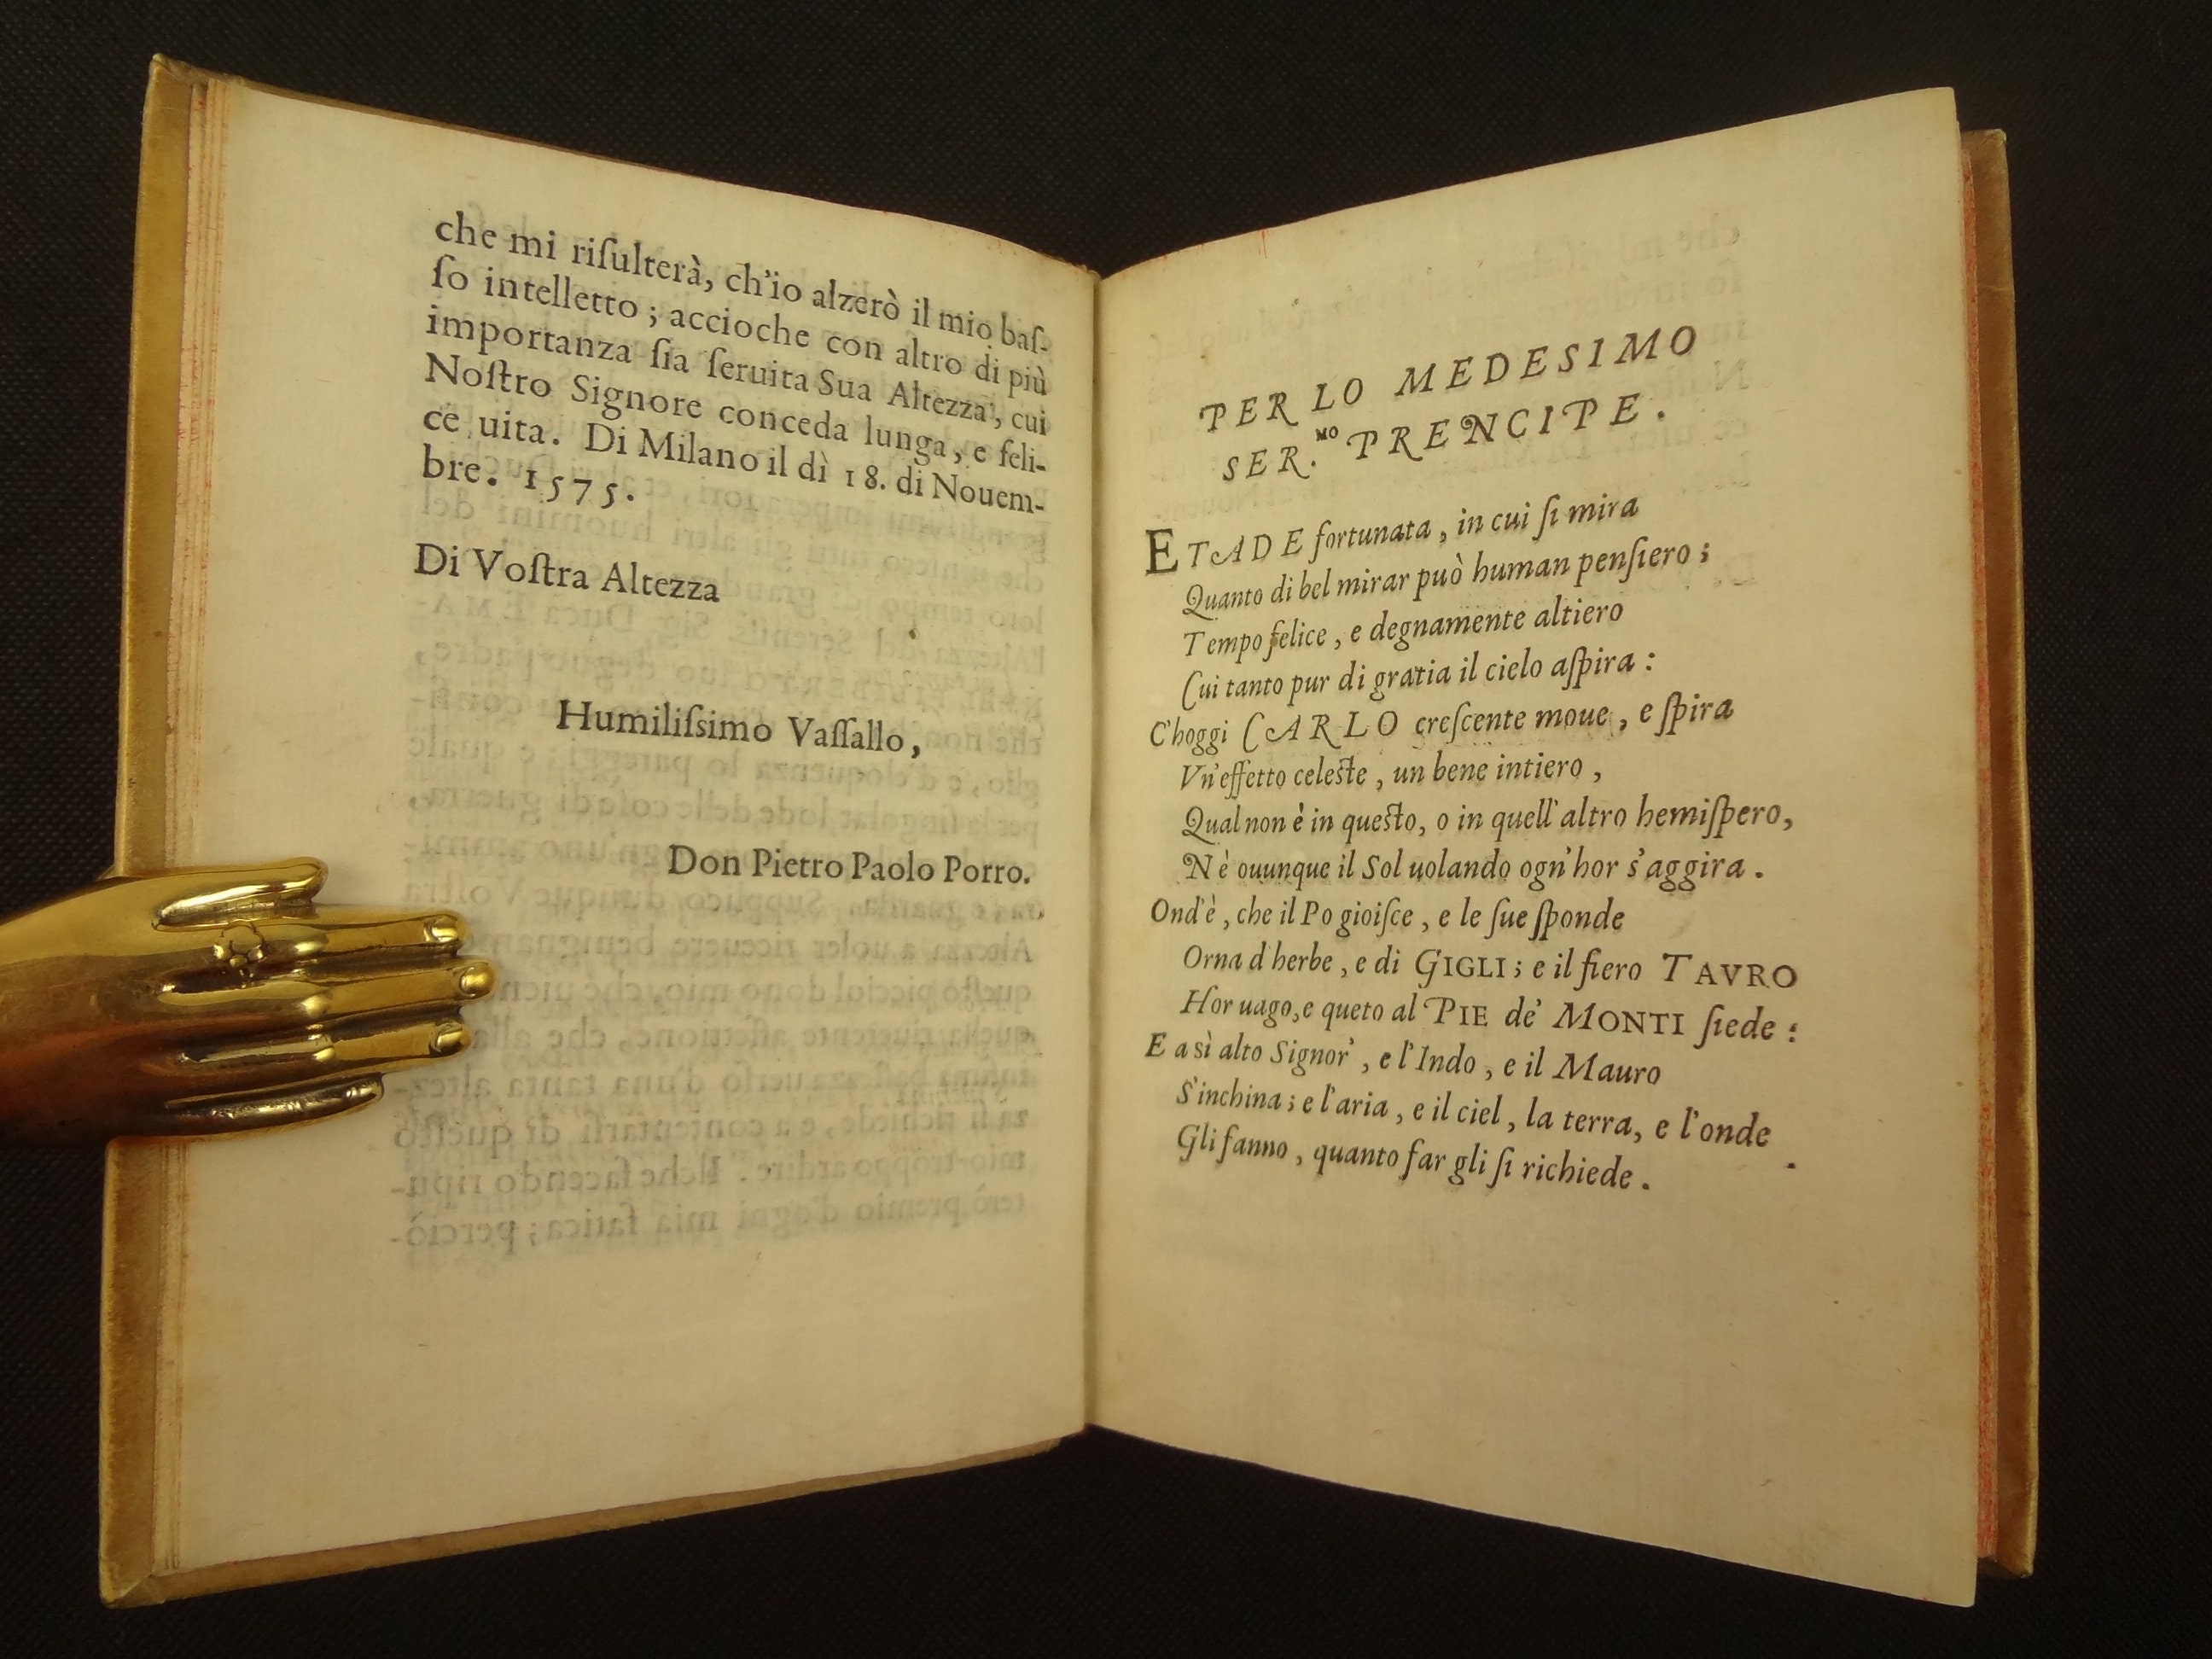 che mi riſulterà, ch'io alzerò il mio baſ-
ſo intelletto ; accioche con altro di più
importanza ſia ſeruita Sua Altezza, cui
Noſtro Signore conceda lunga, e feli-
ce uita. Di Milano il dì 18. di Nouem-
bre. 1575.
Di Voſtra Altezza
Humiliſsimo Vaſſallo,
Don Pietro Paolo Porro.
PER LO MEDESIMO
SER.MO PRENCIPE.
ETADE fortunata, in cui ſi mira
Quanto di bel mirar può human penſiero ;
Tempo felice, e degnamente altiero
Cui tanto pur di gratia il cielo aſpira :
C'hoggi CARLO creſcente moue, e ſpira
Vn'effetto celeſte, un bene intiero,
Qual non è in queſto, o in quell'altro hemiſpero,
Nè ouunque il Sol uolando ogn'hor s'aggira.
Ond'è, che il Po gioiſce, e le ſue ſponde
Orna d'herbe, e di GIGLI ; e il fiero TAVRO
Hor uago, e queto al PIE de' MONTI ſiede :
E a sì alto Signor', e l'Indo, e il Mauro
S'inchina ; e l'aria, e il ciel, la terra, e l'onde
Gli fanno, quanto far gli ſi richiede.